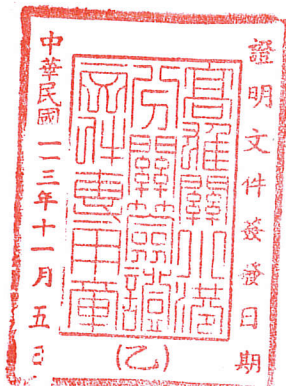 證明文件簽發日期
高雄關小港
分關簽證
件專用章
(乙)
中華民國一一三年十一月五日